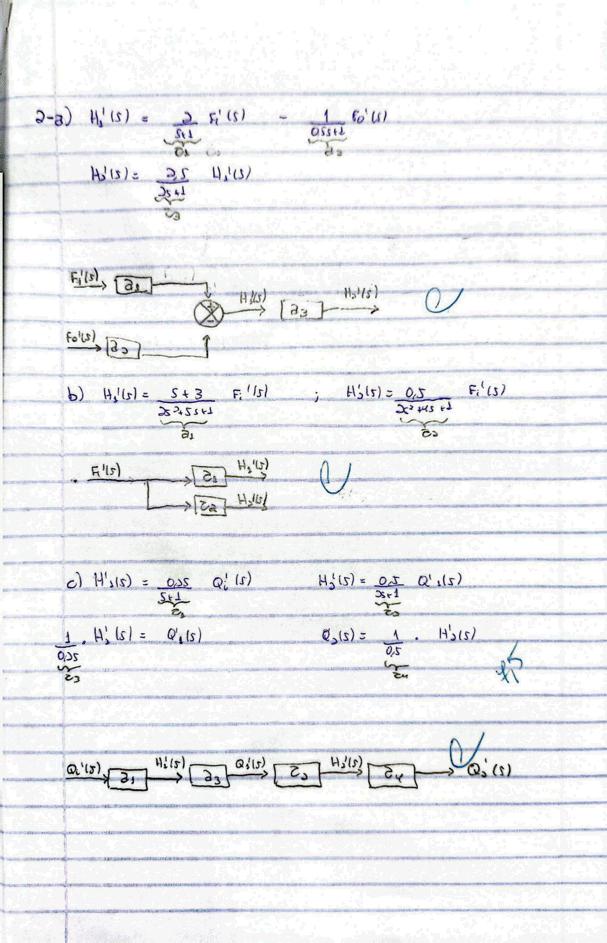 2-a) H₁'(s) = 2/(s+1) Fi'(s) - 1/(0,5s+1) Fo'(s)
G1 G2
H2'(s) = 2,5/(2s+1) H1'(s)
G3
Fi'(s) G1
H1'(s) G3 H2'(s)
Fo'(s) G2
b) H1'(s) = (s+3)/(2s²+5s+1) Fi'(s) ; H2'(s) = 0,5/(2s²+4s+1) Fi'(s)
G1 G2
Fi'(s) G1 H1'(s)
G2 H2'(s)
c) H'1(s) = 0,25/(s+1) Qi'(s) H2'(s) = 0,5/(2s+1) Q'1(s)
G1 G2
1/0,25 . H1'(s) = Q'1(s) Q2(s) = 1/0,5 . H'2(s)
G3 G4
Qi'(s) G1 H1'(s) G3 Q1'(s) G2 H2'(s) G4 Q2'(s)